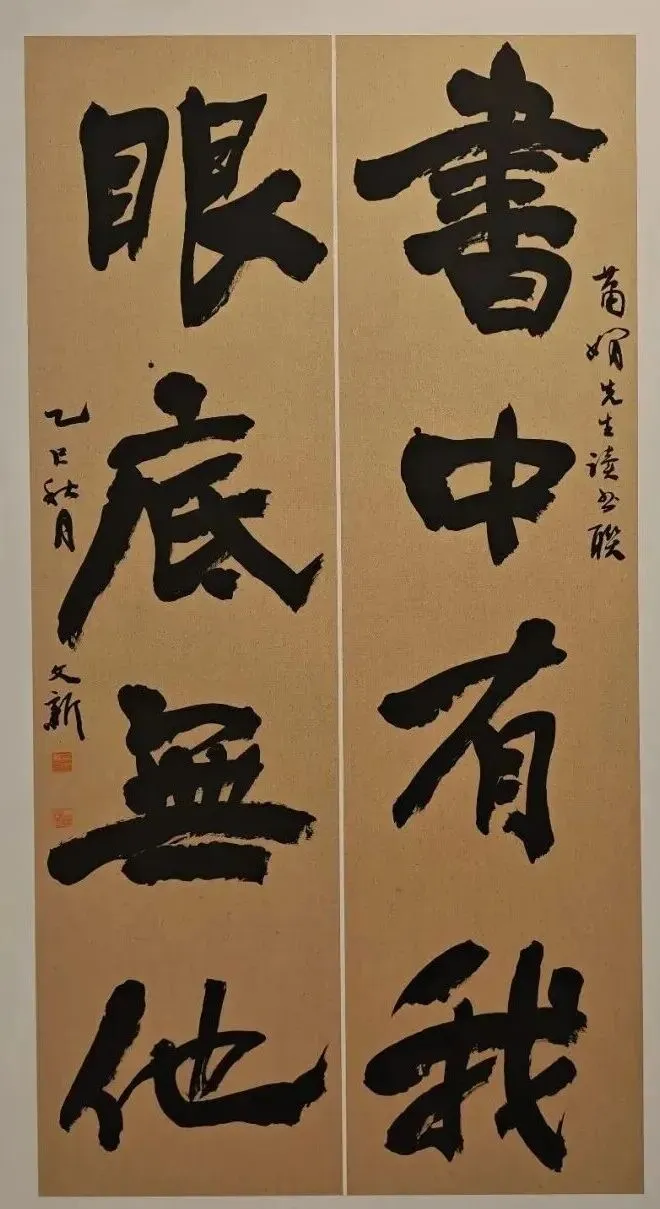 書中有我
先生读书联
眼底無他
乙巳秋月
文新